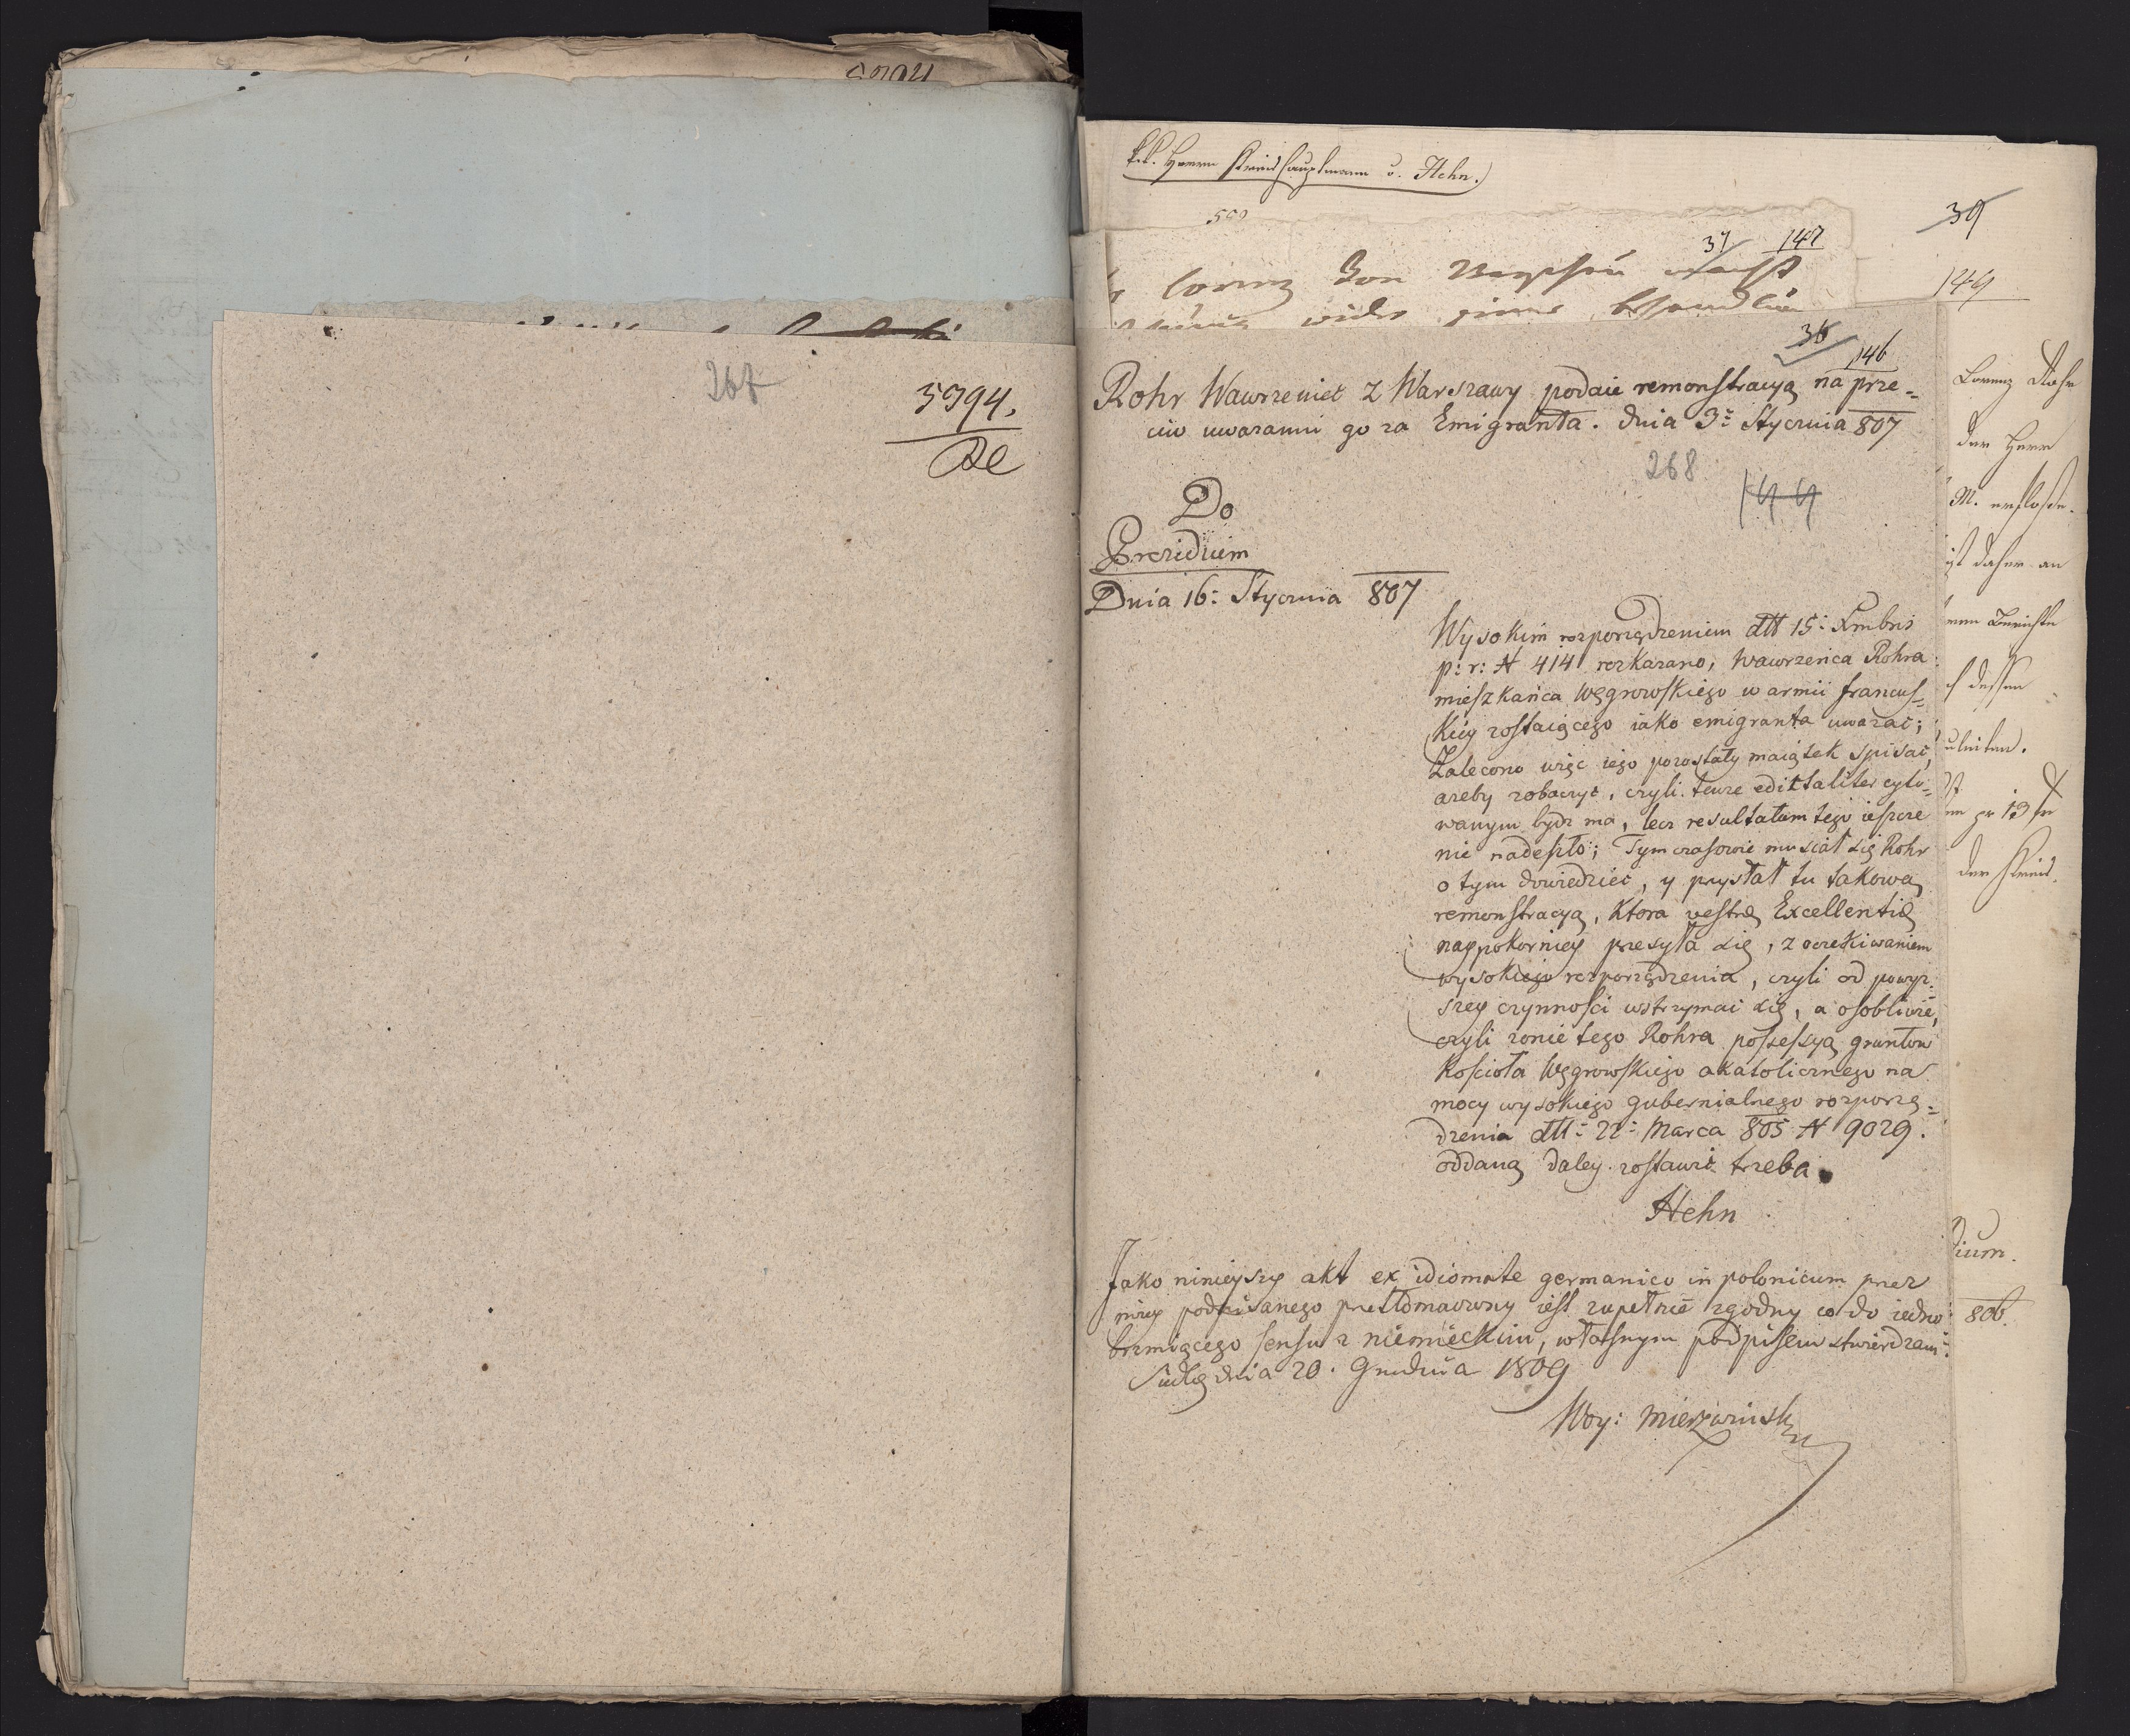 267
5994.
k.k. Herrn Kreishauptmann v. Hehn.
39
37 147
149
Lorenz von
wider seine
36 146
Rohr Wawrzeniec z Warszawy podaie remonstracyą na prze-
ciw uważaniu go za Emigranta. dnia 3: Stycznia 807
268
144
Do
Prezidium
Dnia 16: Stycznia 807
Wysokim rozporządzeniem dtt 15: Xmbris
p: r: N 414 rozkazano, Wawrzeńca Rohra
mieszkańca Węgrowskiego w armii francus=
kiey zostaiącego iako emigranta uważać;
Zalecono więc iego pozostały maiątek spisać,
ażeby zobaczyć, czyli tenże ediktaliter cyto=
wanym bydź ma, lecz resultatum tego ieszcze
nie nadeszło; Tym czasowie musiał się Rohr
o tym dowiedzieć, y przysłał tu takową
remonstracyą, która vestrę Excellentię
naypokorniey przesyła się, z oczekiwaniem
wysokiego rozporządzenia, czyli od powyż=
szey czynności wstrzymać się, a osobliwie,
czyli żonie tego Rohra possessyą gruntow
Kościoła Węgrowskiego akatolicznego na
mocy wysokiego gubernialnego rozporzą=
dzenia dtt: 22: Marca 805 N 9029.
oddaną daley zostawić trzeba.
Hehn
Jako ninieyszy akt ex idiomate germanico in polonicum przez
niżey podpisanego przetłomaczony iest zupełnie zgodny co do iedno
brzmiącego sensu z niemieckim, własnym podpisem stwierdzam:
dnia 20. Grudnia 1809
Woy: Mierzwinski
Lorenz Rohr
der Herr
M.
ist daher an
Berichte
dessen
13
der Kreis
dium.
806.